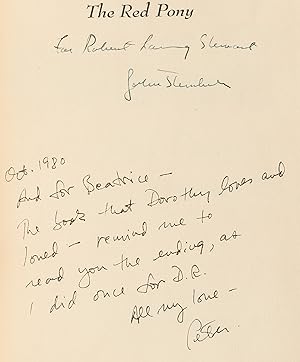 The Red Pony
For Robert Laning Stewart
John Steinbeck
Oct. 1980
And for Beatrice —
The book that Dorothy loves and
loned — remind me to
read you the ending, as
I did once for D.R.
All my love —
Peter.